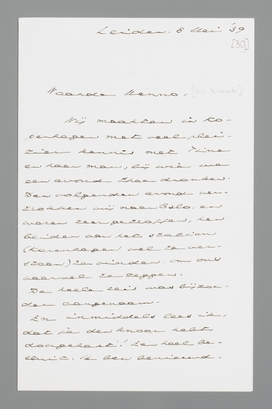 Leiden. 8 Mei '39
[30]
Waarde Menno,
Wij maakten in Ko-
penhagen met veel plei-
zier kennis met Tine
en haar man, bij wie we
een avond thee dronken.
Den volgenden avond ver-
trokken wij naar Oslo, en
waren zeer getroffen, hen
beiden aan het station
(Kopenhagen wel te ver-
staan) te vinden, om ons
vaarwel te zeggen.
De heele reis was bijzon-
der aangenaam.
En inmiddels lees ik,
dat je den knoop hebt
doorgehakt! Een heel be-
sluit. Ik ben benieuwd,